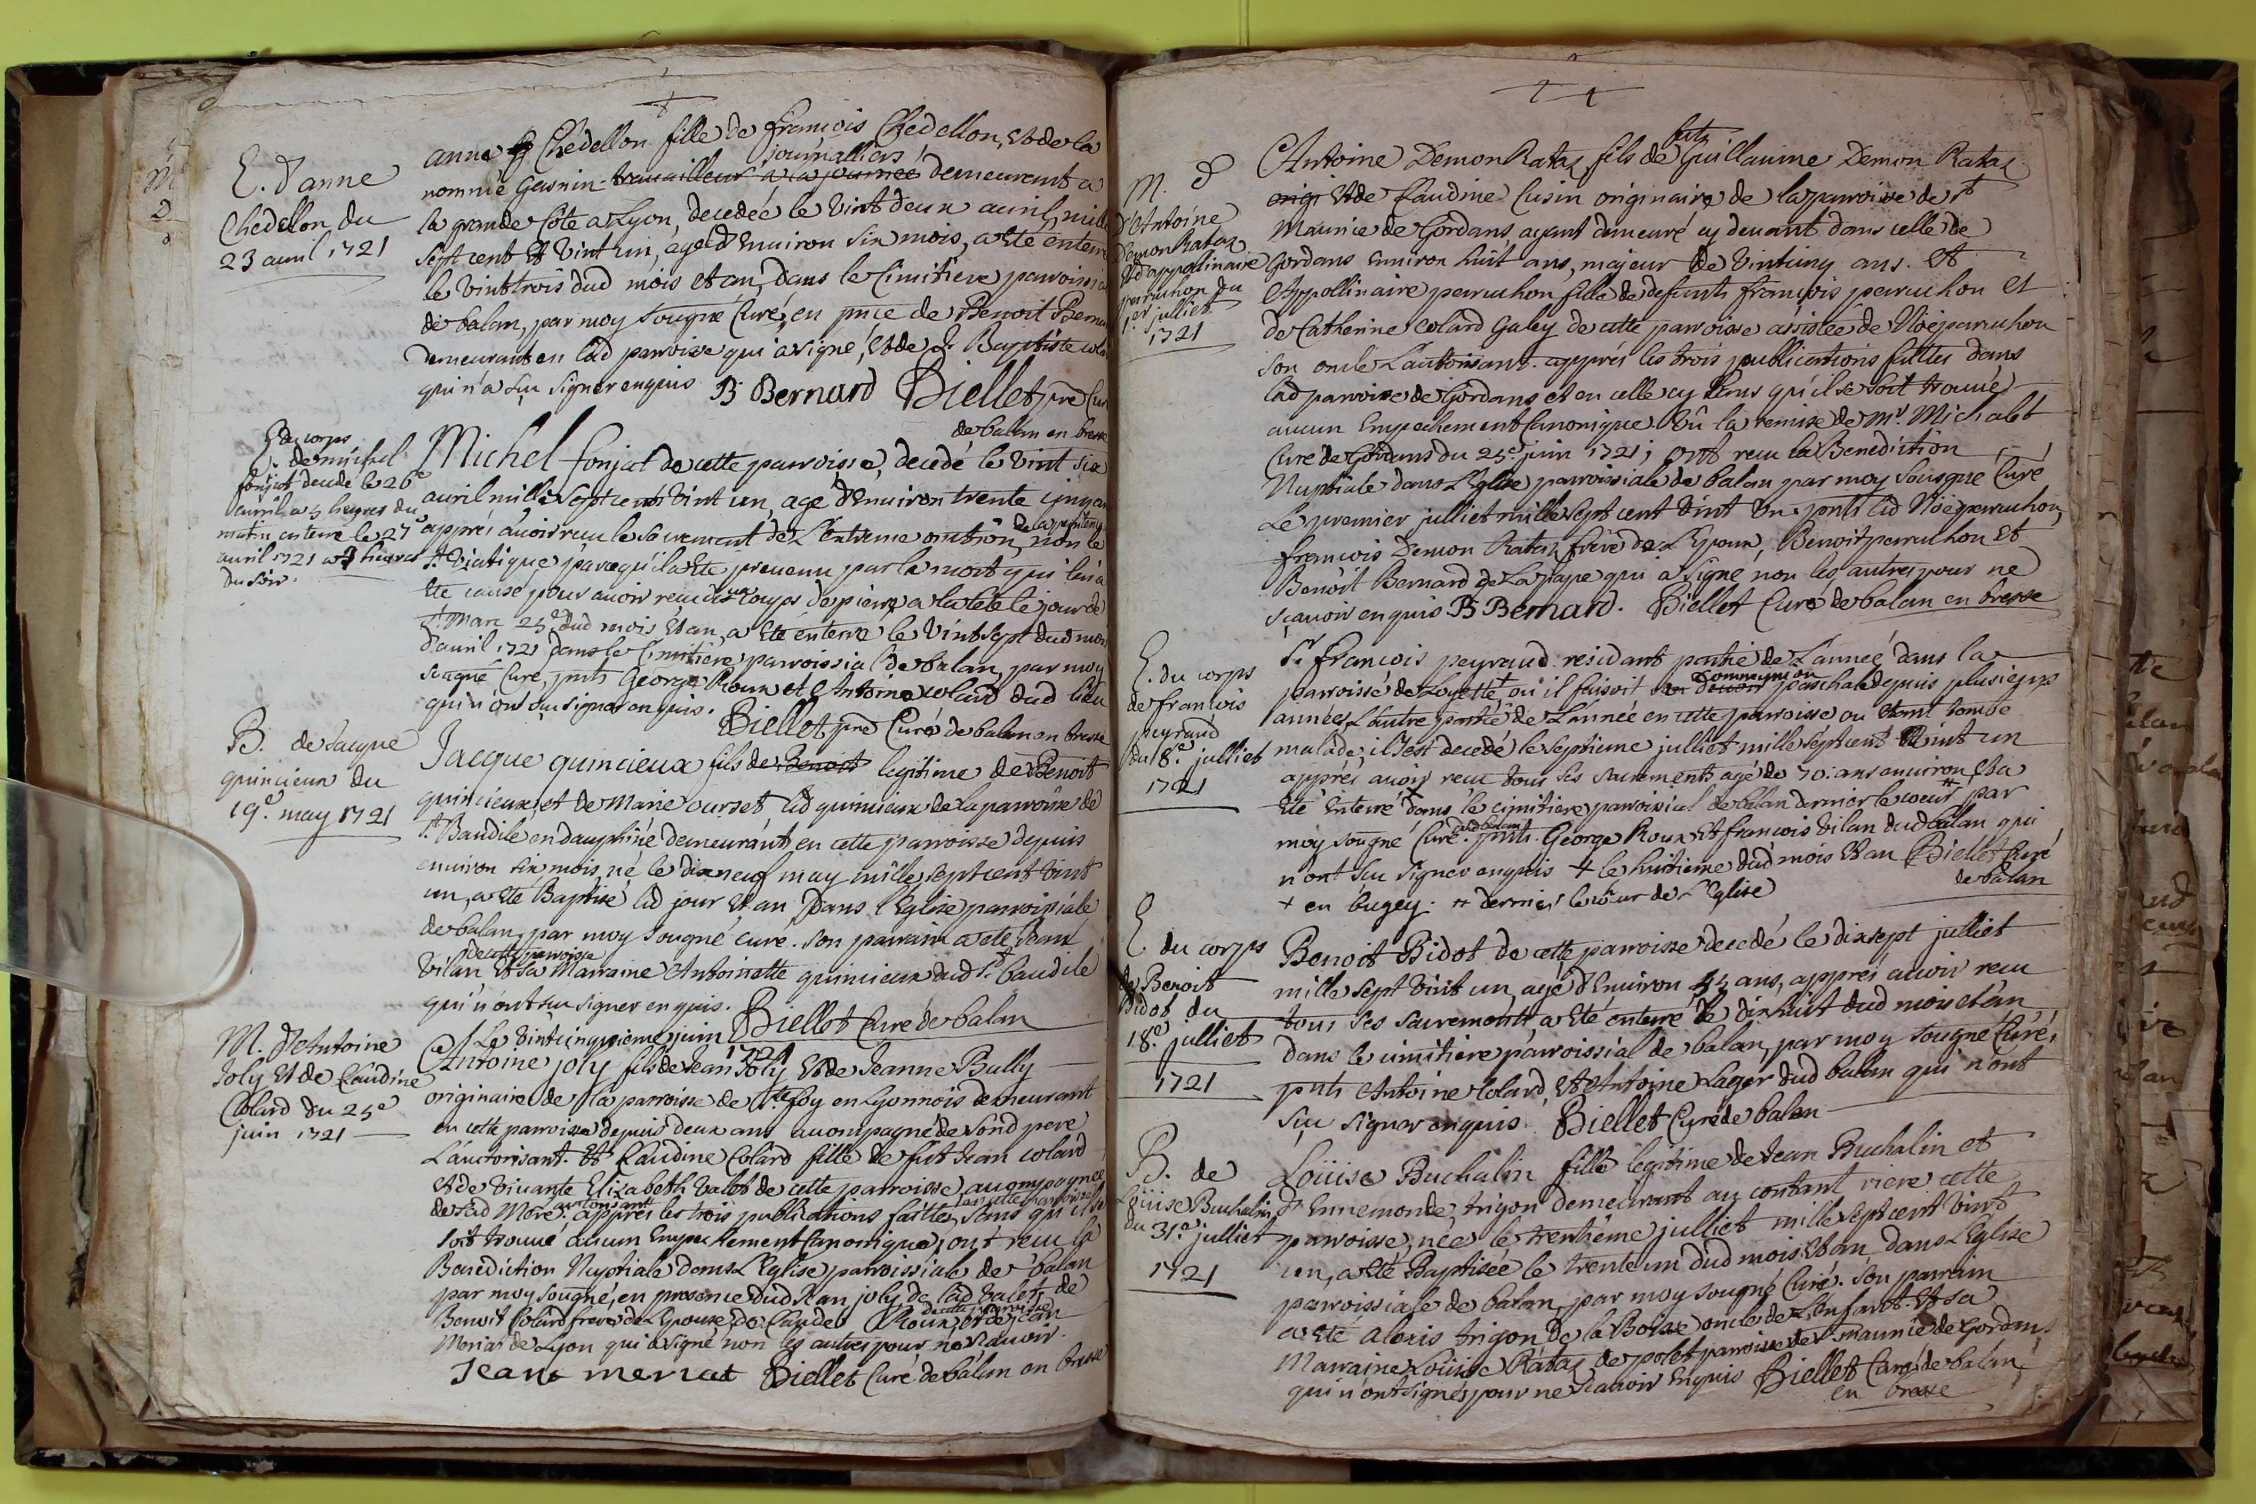 E. d'anne
Chedellon du
23 auril 1721
anne Chedellon fille de françois Chedellon, et de la
nommée Gasnin journalliers travailleur a la journée demeurant a
la grande Côte a Lyon, decedée le vint deux auril mille
sept cent et vint un, agée d'enuiron six mois, a eté enterré
le vint trois dud mois et an, dans le cimitiere parroissial
de balan, par moy sousgné Curé, en pnce de Benoit Bernard
demeurant en lad parroisse qui a signé, et de Jn Baptiste
qui n'a sçu signer enquis B Bernard Biellet pre Curé
de balan en bresse
E. du corps
de michel
fonjat decede le 26e
auril a 5 heures du
matin enterré le 27e
auril 1721 a heures
du soir.
Michel fonjat de cette parroisse, decedé le vint six
auril mille sept cent vint un, agé d'enuiron trente cinq ans
apprés auoir reçu le sacrement de L'extreme onction, non le
st viatique parcequ'il a eté preuenu par la mort qui lui a
eté causé pour auoir reçu des coups de pierre a la tete le jour de
st Marc 25e dud mois et an, a eté enterré le vint sept dud mois
d'auril 1721 dans le cimitiere parroissial de balan, par moy
sougné Curé, pnts George Roux et Antoine colard dud lieu
qui n'ont sçu signer enquis. Biellet pre Curé de balan en bresse
B. de Jacque
quincieux du
19e. may 1721
Jacque quincieux fils de Benoit legitime de Benoit
quincieux, et de Marie ourset, lid quincieux de la parroisse de
st Baudile en dauphiné demeurant en cette parroisse depuis
enuiron six mois, né le dixneuf may mille sept cent vint
un, a eté Baptisé lid jour et an dans l'Eglise parroissiale
de balan, par moy sougné curé. son parrain a eté Jean
vilan de cette parroisse et sa Marraine Antoinette quincieux dud st baudile
qui n'ont sçu signer enquis. Biellet Curé de balan
M. d'Antoine
Joly et de Claudine
Colard du 25e
juin 1721
Le vintcinqyieme juin 1721
Antoine joly fils de Jean Joly et de Jeanne Bully
originaire de la parroisse de ste foy en Lyonnois demeurant
en cette parroisse depuis deux ans accompagné de sond pere
L'auctorisant. et Claudine Colard fille de fut Jean colard
et de viuante Elizabeth valet de cette parroisse, accompagnée
de lad Mere autorisant. apprés les trois publications faittes en cette parroisse sans qu'il se
soit trouué aucun Empechement Canonique, ont reçu la
Benediction Nuptiale dans L'Eglise parroissiale de balan
par moy sougné, en presence dud Jean joly de lad valet, de
Benoit Colard frere de L'epouse, de Claude Roux de cette parroisse, et de jean
Meriat de Lyon qui a signé non les autres pour ne sçauoir.
Jean meriat Biellet Curé de balan en bresse
M. d
d'Antoine
Demon Ratas
et d'appolinaire
perruchon du
1er julliet
1721
Antoine Demon Ratas fils de futs Guillaume Demon Ratas
origi et de Claudine Cusin originaire de la parroisse de st
Maurice de Gordans, ayant demeuré cy deuant dans celle de
Gordans enuiron huit ans, majeur de vintcinq ans. et
Appollinaire perruchon fille de defunts françois perruchon et
de Catherine Colard Galey de cette parroisse assistée de Noé perruchon
son oncle L'autorisant. apprés les trois publications faittes dans
lad parroisse de Gordans et en celle cy sans qu'il se soit trouué
aucun Empechement Canonique vû la remise de Mr. Michalet
Curé de Gordans du 25e. juin 1721; ont reçu la Benediction
Nuptiale dans L'eglise parroissiale de balan par moy Sousgné Curé
Le premier julliet mille sept cent vint un. pnts lid Noé perruchon,
françois Demon Ratas frere de L'epoux, Benoit perruchon et
Benoit Bernard de Lapape qui a signé non les autres pour ne
sçauoir enquis B Bernard. Biellet Curé de balan en bresse
E. du corps
de francois
peyraud
du 8e. julliet
1721
Sr. francois peyraud residant partie de L'année dans la
parroisse de Loyette + ou il faisoit son Deuoir communion paschale depuis plusieurs
années L'autre partie de L'année en cette parroisse ou etant tombé
malade, il est decedé le septieme julliet mille sept cent vint un
apprés auoir reçu tous ses sacrements agé de 70: ans enuiron, et a
eté enterré dans le cimitiere parroissial de balan dernier le coeur ++ par
moy sougné Curé. pnts. George Roux et françois vilan dud balan qui
n'ont sçu signer enquis + le huitieme dud mois et an Biellet Curé
de balan
+ en bugey. ++ dernier le coeur de L'Eglise
E. du corps
de Benoit
Bidot du
18e. julliet
1721
Benoit Bidot de cette parroisse decedé le dixsept julliet
mille sept vint un, agé d'enuiron ans, apprés auoir reçu
tous ses sacrements, a eté enterré le dixhuit dud mois et an
dans le cimitiere parroissial de balan, par moy sougné Curé,
pnts Antoine Colard, et Antoine Lager dud balan qui n'ont
sçu signer enquis. Biellet Curé de balan
B. de
Loüise Buchalin
du 31e. julliet
1721
Loüise Buchalin fille legitime de Jean Buchalin et
d'Ennemonde trigon demeurant au contant riere cette
parroisse, née le trentiéme julliet mille sept cent vint
un, a eté Baptisée le trente un dud mois et an dans L'Eglise
parroissiale de balan, par moy sougné Curé. Son parrain
a eté alexis trigon de la Boisse oncle de L'enfant. et sa
Marraine Loüise Ratas de polet parroisse de st maurice de Gordans
qui n'ont signés pour ne sçauoir Enquis Biellet Curé de balan
en bresse